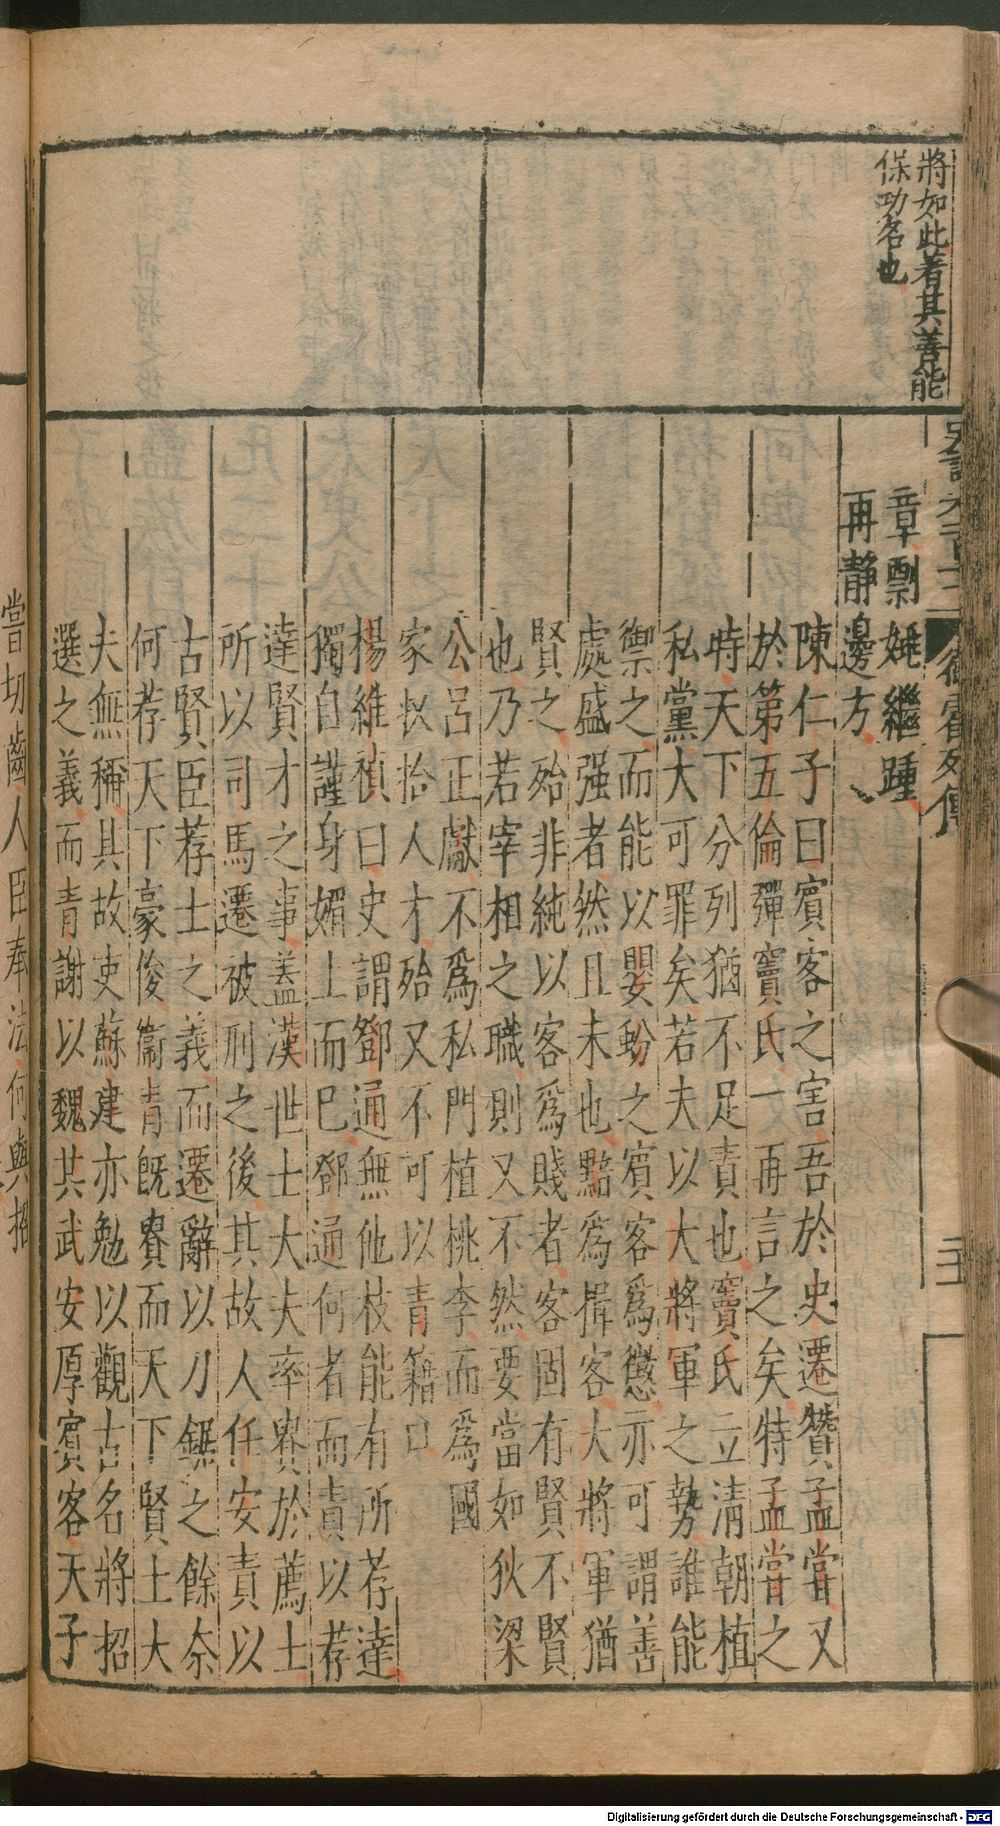 將如此著其善能
保功名也
史記卷一百十一
衛霍列傳
章剽姚繼踵
再静邊方
陳仁子曰賓客之害吾於史遷贊孟嘗又
於第五倫彈竇氏一再言之矣特孟嘗之
時天下分列猶不足責也竇氏立清朝植
私黨大可罪矣若夫以大將軍之勢誰能
禦之而能以嬰蚡之賓客為懲亦可謂善
處盛强者然且未也黯為揖客大將軍猶
賢之殆非純以客為賤者客固有賢不賢
也乃若宰相之職則又不然要當如狄梁
公呂正獻不為私門植桃李而為國
家收拾人才殆又不可以青籍口
楊維禎曰史謂鄧通無他枝能有所荐達
獨自謹身媚上而已鄧通何者而責以荐
達賢才之事蓋漢世士大夫率貴於薦士
所以司馬遷被刑之後其故人任安責以
古賢臣荐士之義而遷辭以刀鋸之餘奈
何荐天下豪俊衛青既貴而天下賢士大
夫無稱其故吏蘇建亦勉以觀古名將招
選之義而青謝以魏其武安厚賓客天子
嘗切齒人臣奉法何與招
Digitalisierung gefördert durch die Deutsche Forschungsgemeinschaft - DFG